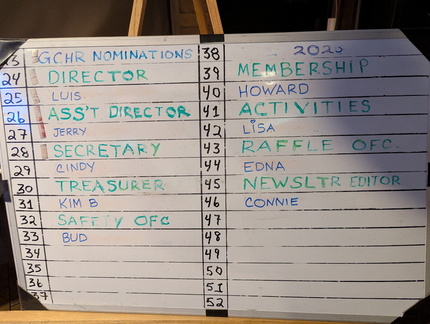 GCHR NOMINATIONS
24 DIRECTOR
25 LUIS
26 ASS'T DIRECTOR
27 JERRY
28 SECRETARY
29 CINDY
30 TREASURER
31 KIM B
32 SAFETY OFC
33 BUD
34
35
36
37
38
39 MEMBERSHIP
40 HOWARD
41 ACTIVITIES
42 LiSA
43 RAFFLE OFC.
44 EDNA
45 NEWSLTR EDITOR
46 CONNIE
47
48
49
50
51
52